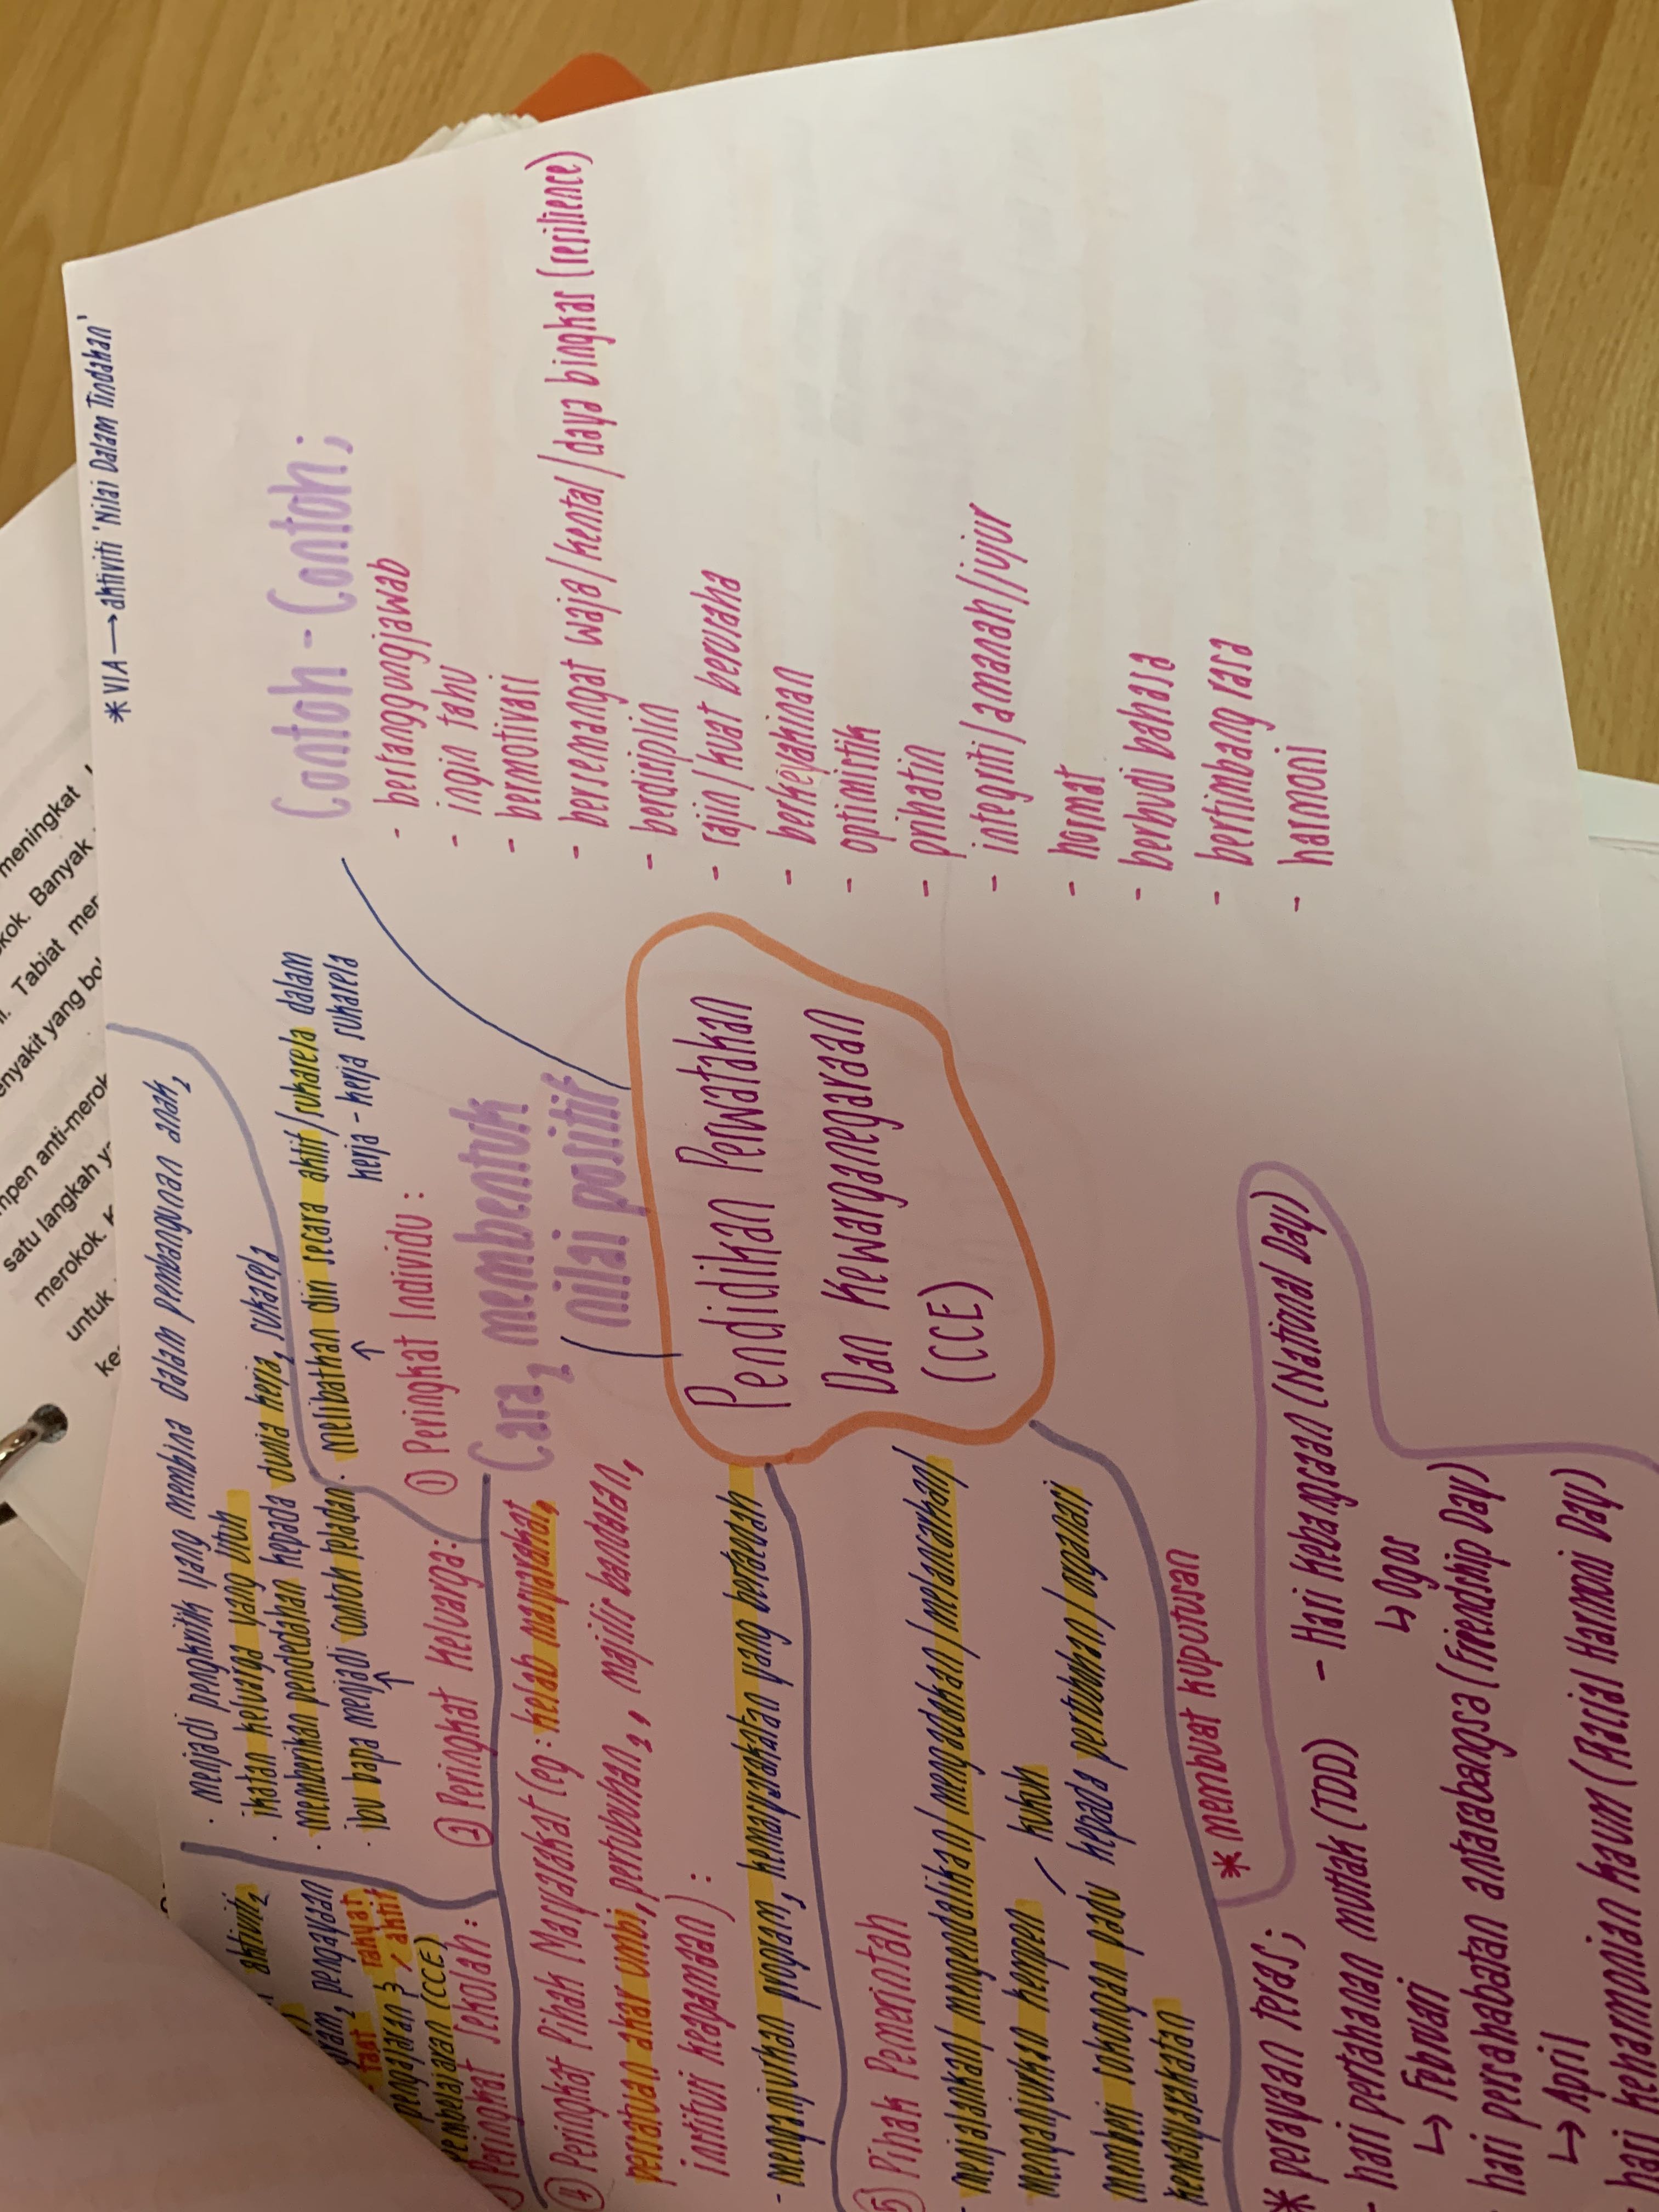 *VIA → aktiviti 'Nilai Dalam Tindakan'
Contoh - Contoh;
- bertanggungjawab
- ingin tahu
- bermotivasi
- bersemangat waja/kental/daya bingkas (resilience)
- berdisiplin
- rajin/kuat berusaha
- berkeyakinan
- optimistik
- prihatin
- integriti/amanah/jujur
- hormat
- berbudi bahasa
- bertimbang rasa
- harmoni
Cara2 membentuk
nilai positif
Pendidikan Perwatakan
Dan Kewarganegaraan
(CCE)
· melibatkan diri secara aktif/sukarela dalam
kerja - kerja sukarela
↑
① Peringkat Individu:
· menjadi pengkritik yang membina dalam pembangunan anak2
· ikatan keluarga yang utuh
· memberikan pendedahan kepada dunia kerja2 sukarela
· ibu bapa menjadi contoh teladan
↑
② Peringkat Keluarga:
aktiviti2
pengayaan
pengajaran &
pembelajaran (CCE)
Peringkat Sekolah:
④ Peringkat Pihak Masyarakat (eg: kelab masyarakat,
persatuan akar umbi, pertubuhan2, majlis bandaran,
institusi keagamaan):
- menganjurkan program2 kemasyarakatan yang berfaedah
⑤ Pihak Pemerintah
- menjalankan/mengendalikan/mengadakan/melancarkan/
menganjurkan kempen
kukuh
memberi sokongan padu kepada pertubuhan/organisasi
kemasyarakatan
* membuat kuputusan
* perayaan teras;
- hari pertahanan mutlak (TDD)
↳ Febuari
- Hari Kebangsaan (National Day)
↳ Ogos
hari persahabatan antarabangsa (Friendship Day)
↳ April
hari keharmonian kaum (Racial Harmoni Day)
meningkat
Banyak
Tabiat
penyakit yang
anti-merok
satu langkah
merokok.
untuk